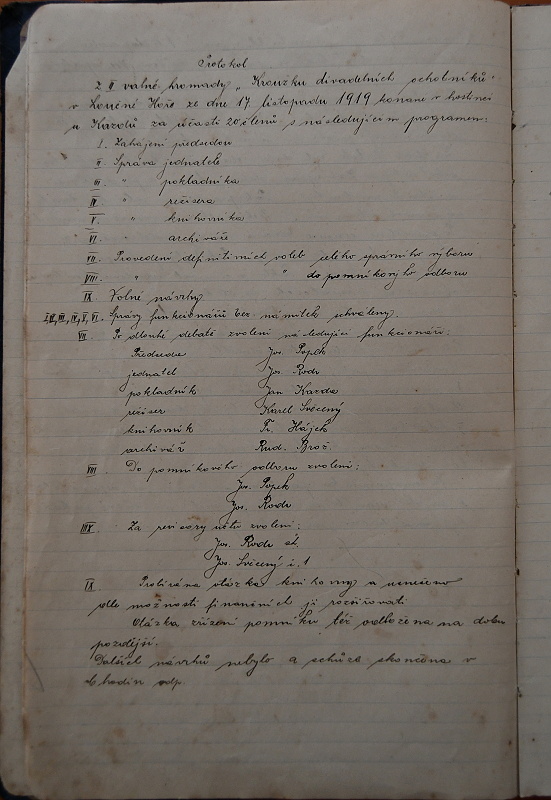 Protokol
z II valné hromady „Kroužku divadelních ochotníků"
v Loučné Hoře ze dne 17. listopadu 1919 konané v hostinci
u Kazdů za účasti 20 členů s následujícím programem:
I. Zahájení předsedou
II Správa jednatele
III " pokladníka
IV " režisera
V. " knihovníka
VI " archiváře
VII. Provedení definitivních voleb celého správního výboru
VIII. " " do pomníkovýho odboru
IX. Volné návrhy
I, II, III, IV, V, VI. Správy funkcionářů bez námitek schváleny.
VII. Po dlouhé debatě zvoleni následující funkcionáři:
Předseda Jos. Popek
jednatel Jos. Rodr
pokladník Jan Kazda
režiser Karel Svěcený
knihovník Fr. Hájek
archivář Rud. Brož.
VIII Do pomníkového odboru zvoleni:
Jos. Popek
Jos. Rodr
IIX. Za revisory účtů zvoleni:
Jos. Rodr st.
Jos. Svěcený č. 1
IX. Probírána otázka knihovny a usneseno
dle možností finančních ji rozšiřovati.
Otázka zřízení pomníku též odložena na dobu
pozdější.
Dalších návrhů nebylo a schůze skončena v
hodin odp.